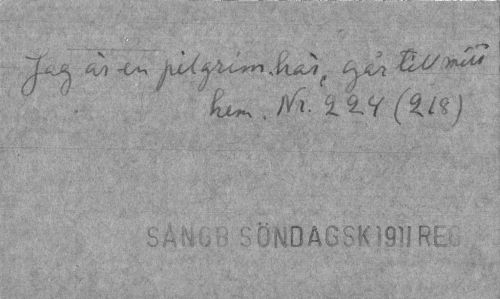 Jag är en pilgrim här, går till mitt
hem. Nr. 224 (218)
SÅNGB SÖNDAGSK 1911 REG